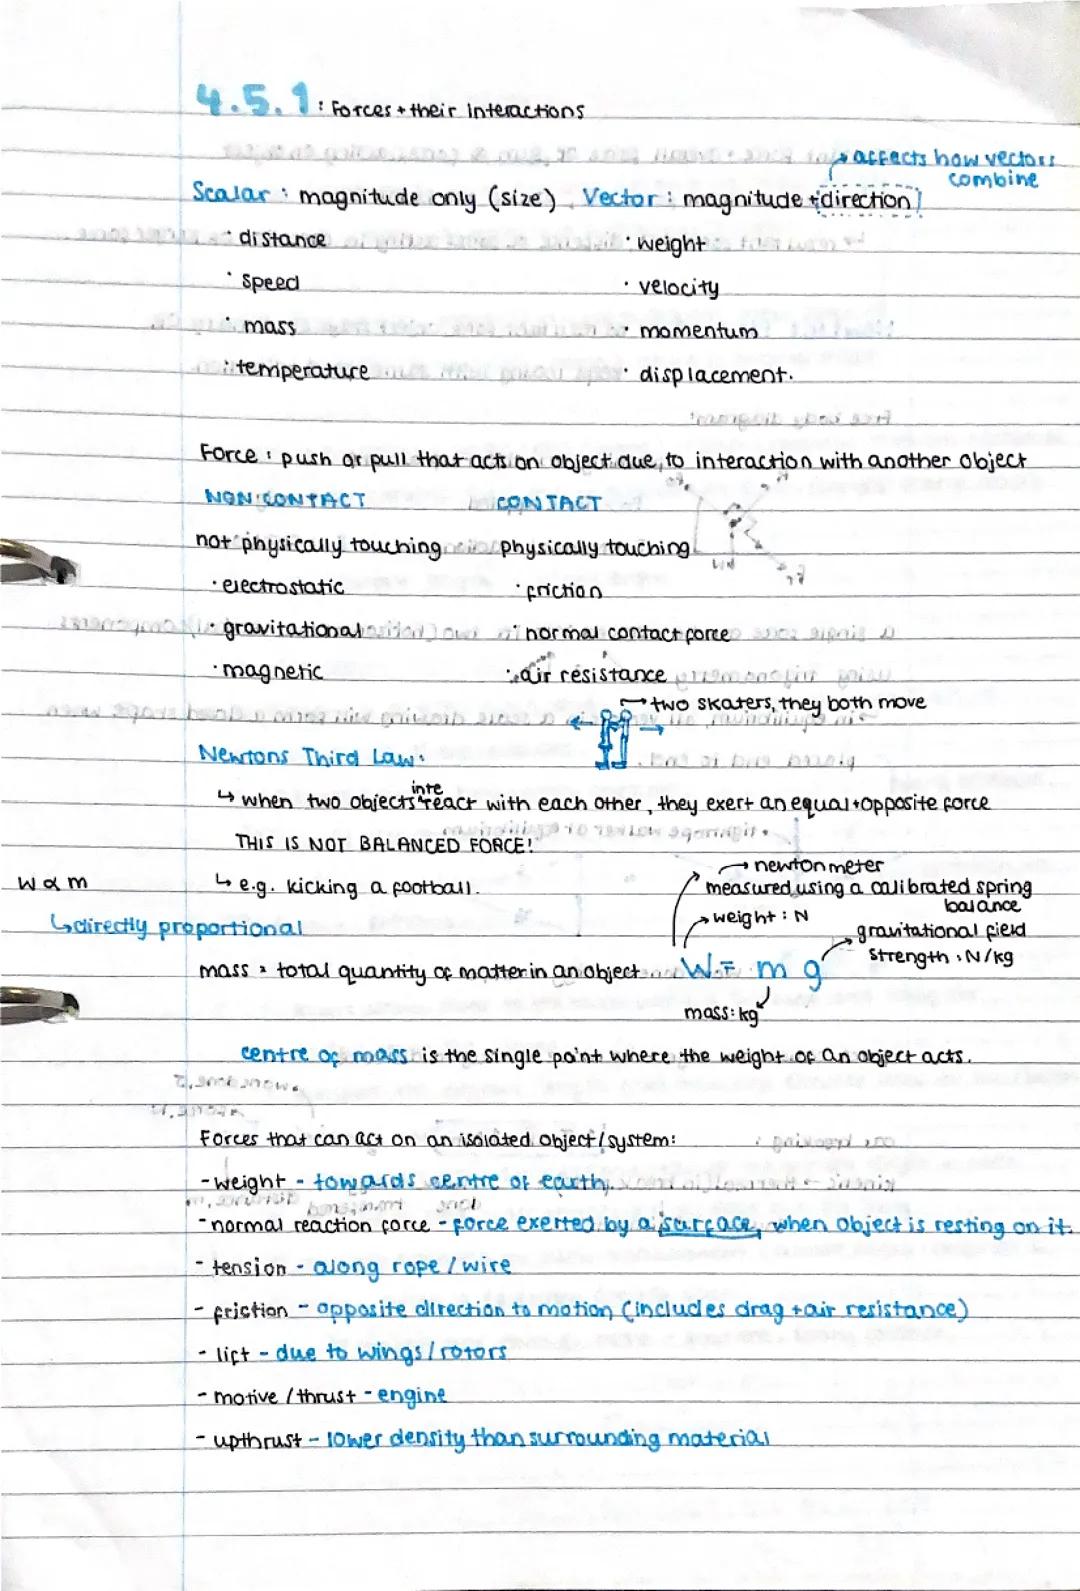 4.5.1: Forces + their interactions
→ affects how vectors
combine
Scalar : magnitude only (size) Vector : magnitude + direction
· distance · weight
· speed · velocity
· mass · momentum
· temperature · displacement.
Force : push or pull that acts on object due to interaction with another object
NON CONTACT CONTACT
not physically touching physically touching
· electrostatic · friction
· gravitational · normal contact force
· magnetic · air resistance
→ two skaters, they both move
Newtons Third Law:
inte
↳ when two objects react with each other, they exert an equal + opposite force
THIS IS NOT BALANCED FORCE!
→ newtonmeter
W ∝ m ↳ e.g. kicking a football. measured using a calibrated spring
balance
→ weight : N
↳ directly proportional gravitational field
strength : N/kg
mass : total quantity of matter in an object W = m g
mass: kg
centre of mass is the single point where the weight of an object acts.
Forces that can act on an isolated object/system:
- weight - towards centre of earth.
- normal reaction force - force exerted by a surface, when object is resting on it.
- tension - along rope / wire
- friction - opposite direction to motion (includes drag + air resistance)
- lift - due to wings / rotors
- motive / thrust - engine
- upthrust - lower density than surrounding material